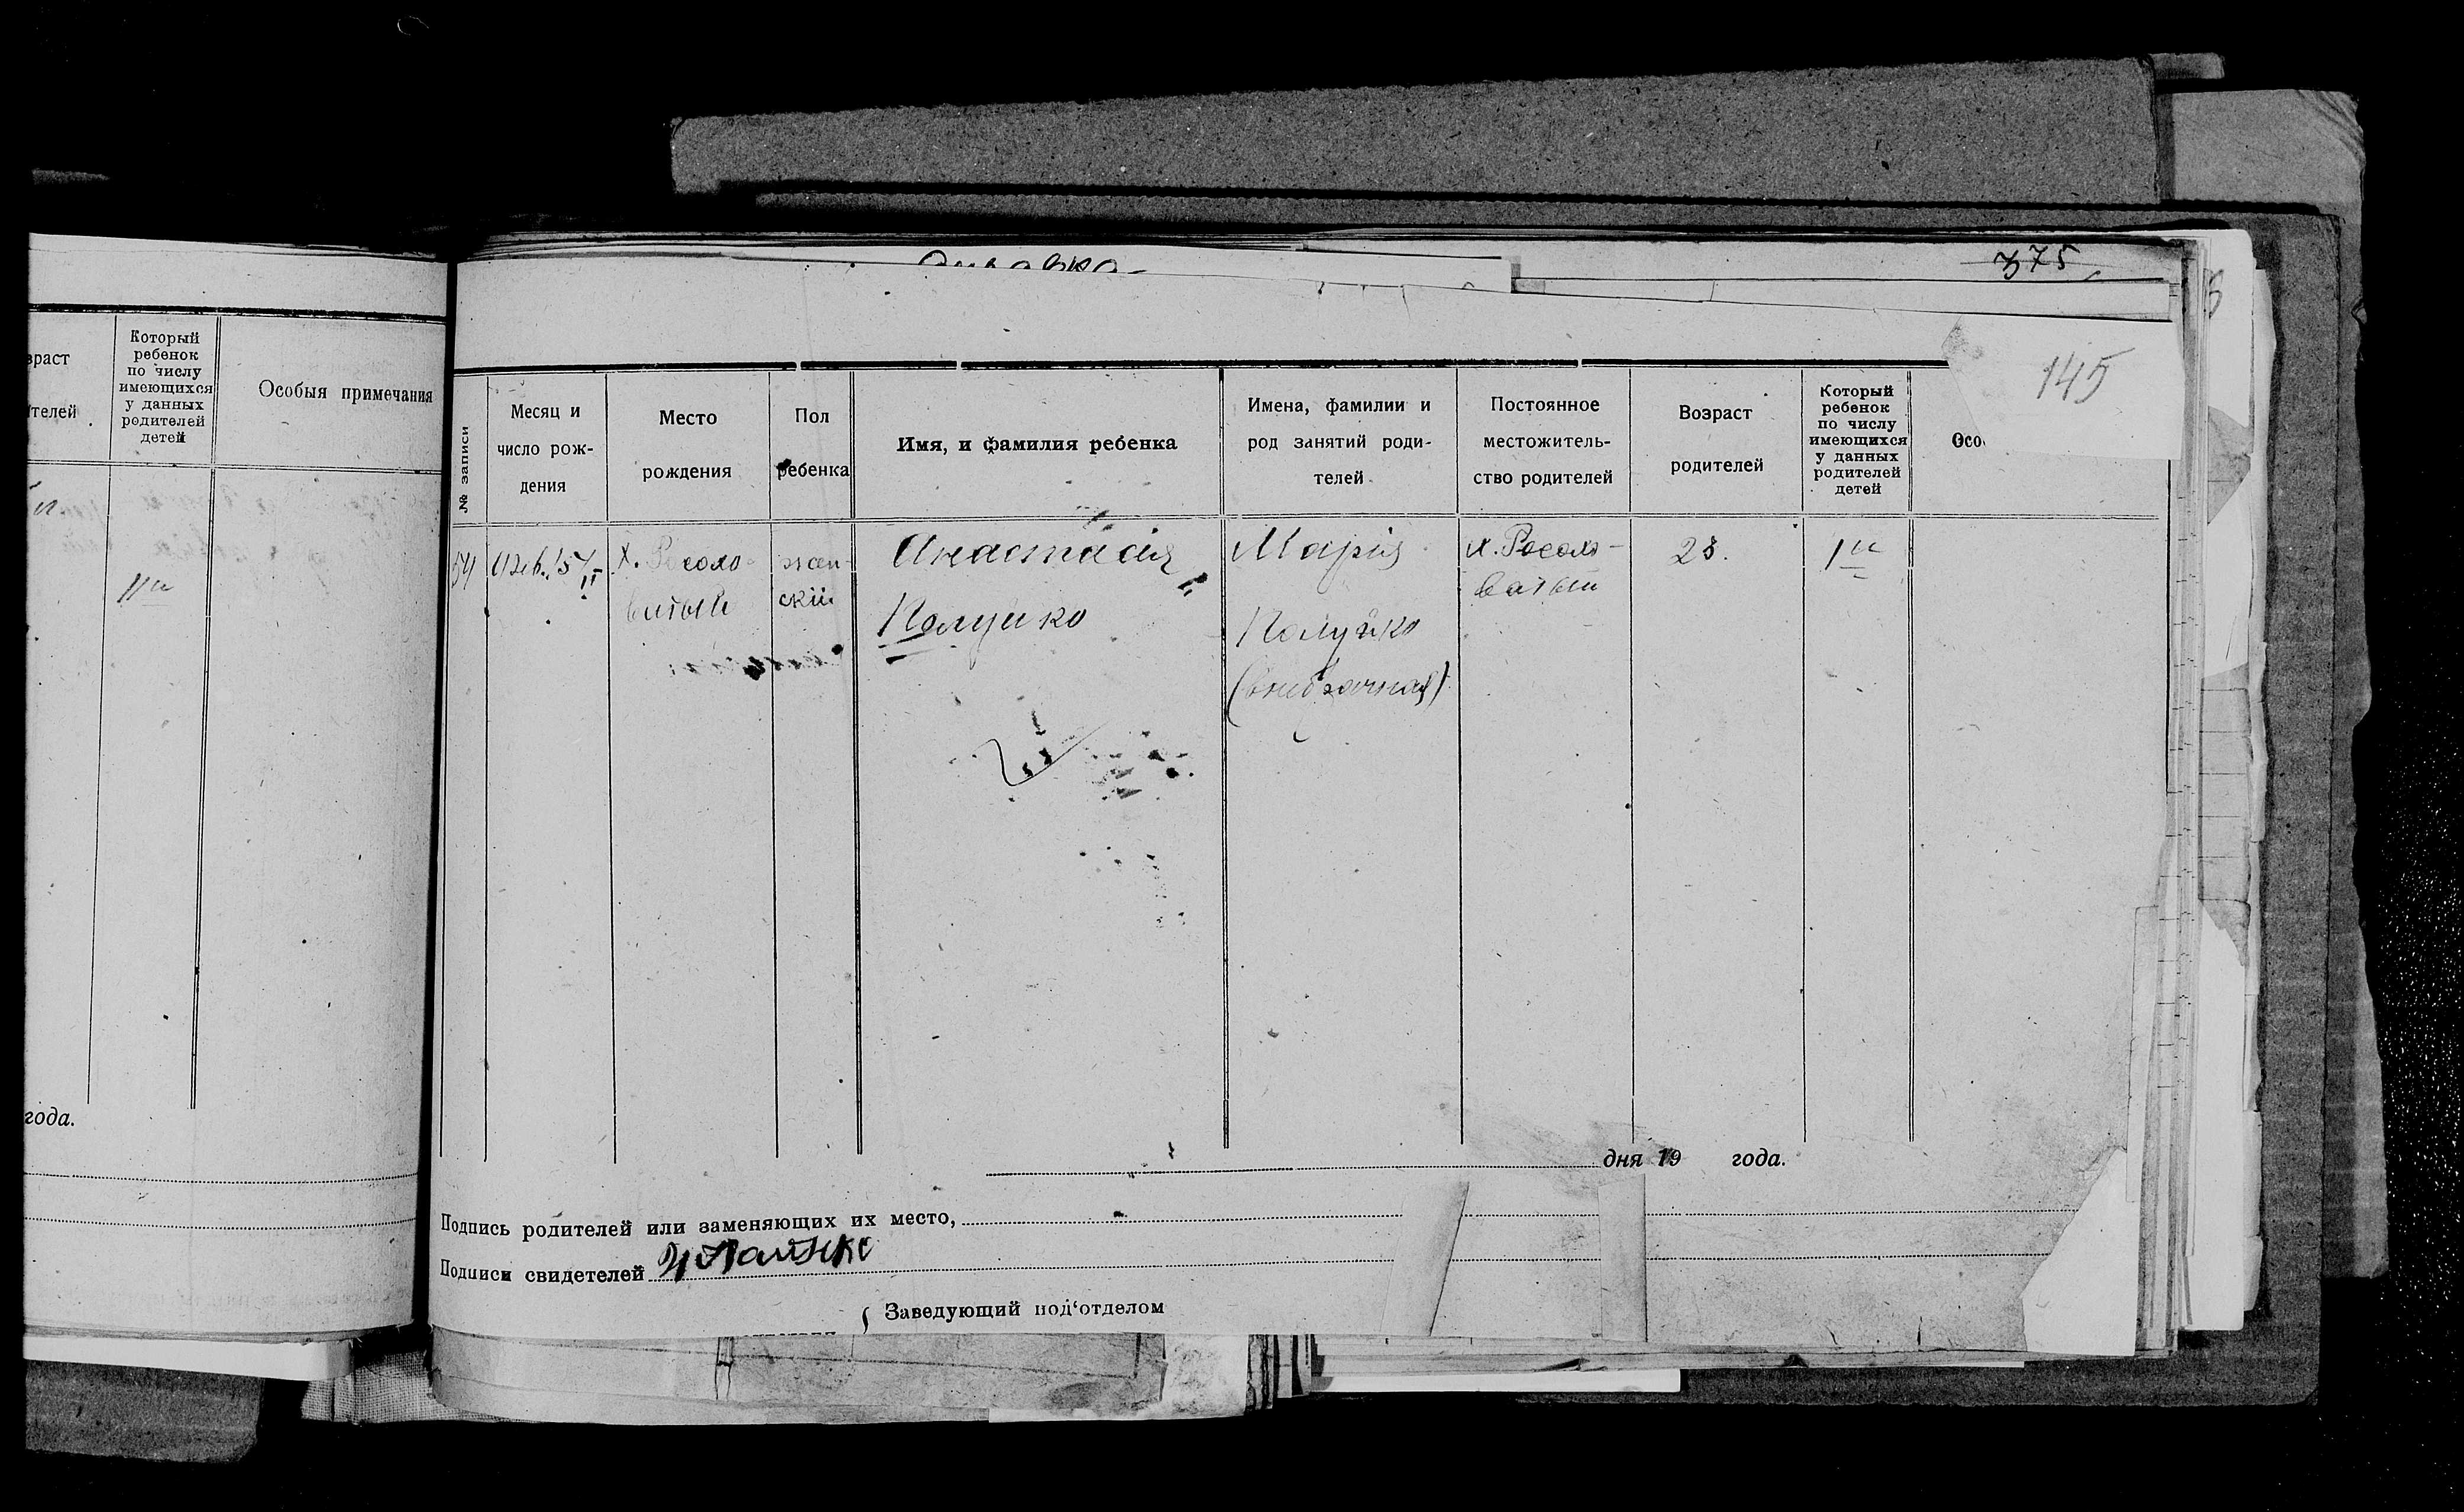 375
145
зраст
ителей
Который
ребенок
по числу
имеющихся
у данных
родителей
детей
Особыя примечания
11й
года.
№ записи
Месяц и
число рож-
дения
Место
рождения
Пол
ребенка
Имя, и фамилия ребенка
Имена, фамилии и
род занятий роди-
телей
Постоянное
местожитель-
ство родителей
Возраст
родителей
Который
ребенок
по числу
имеющихся
у данных
родителей
детей
Осо
54
х. Росоло-
ватый
жен-
скій
Анастасія
Полуйко
Марія
Полуйко
(внебрачная)
х. Росоло-
ватый
28.
1й
дня 19 года.
Подпись родителей или заменяющих их место,
Подписи свидетелей
Заведующий под'отделом